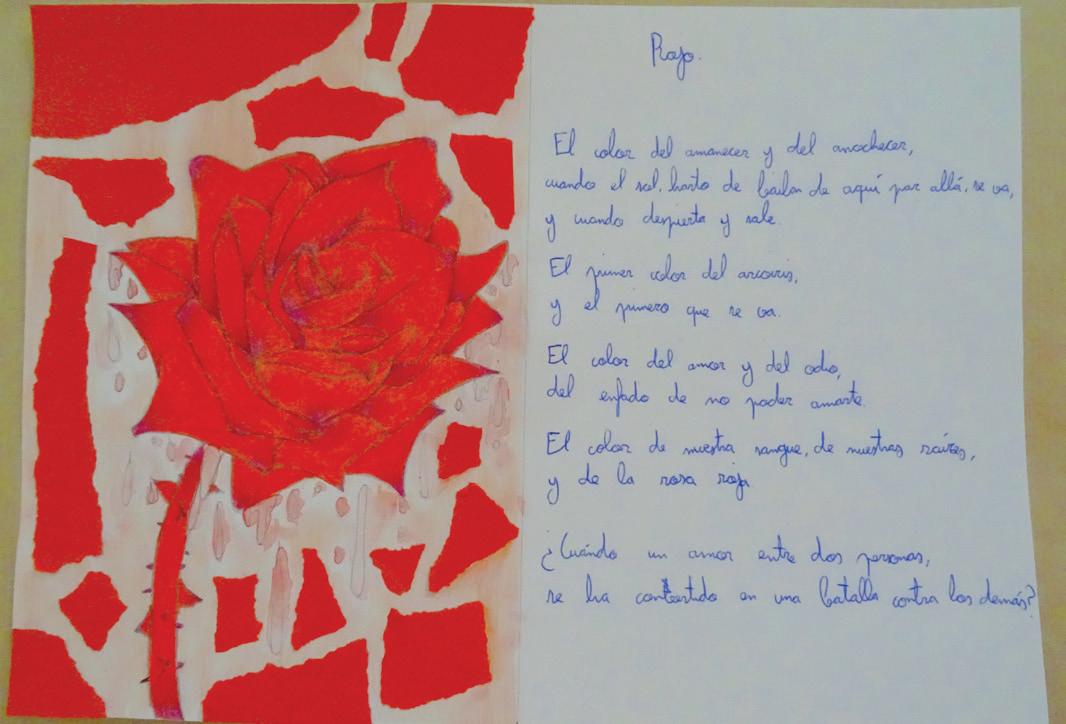 Rojo.
El color del amanecer y del anochecer,
cuando el sol, harto de bailar de aquí par allá, se va,
y cuando despierta y sale.
El primer color del arcoiris,
y el primero que se va.
El color del amor y del odio,
del enfado de no poder amarte.
El color de nuestra sangre, de nuestras raíces,
y de la rosa roja
¿Cuándo un amor entre dos personas,
se ha convertido en una batalla contra los demás?